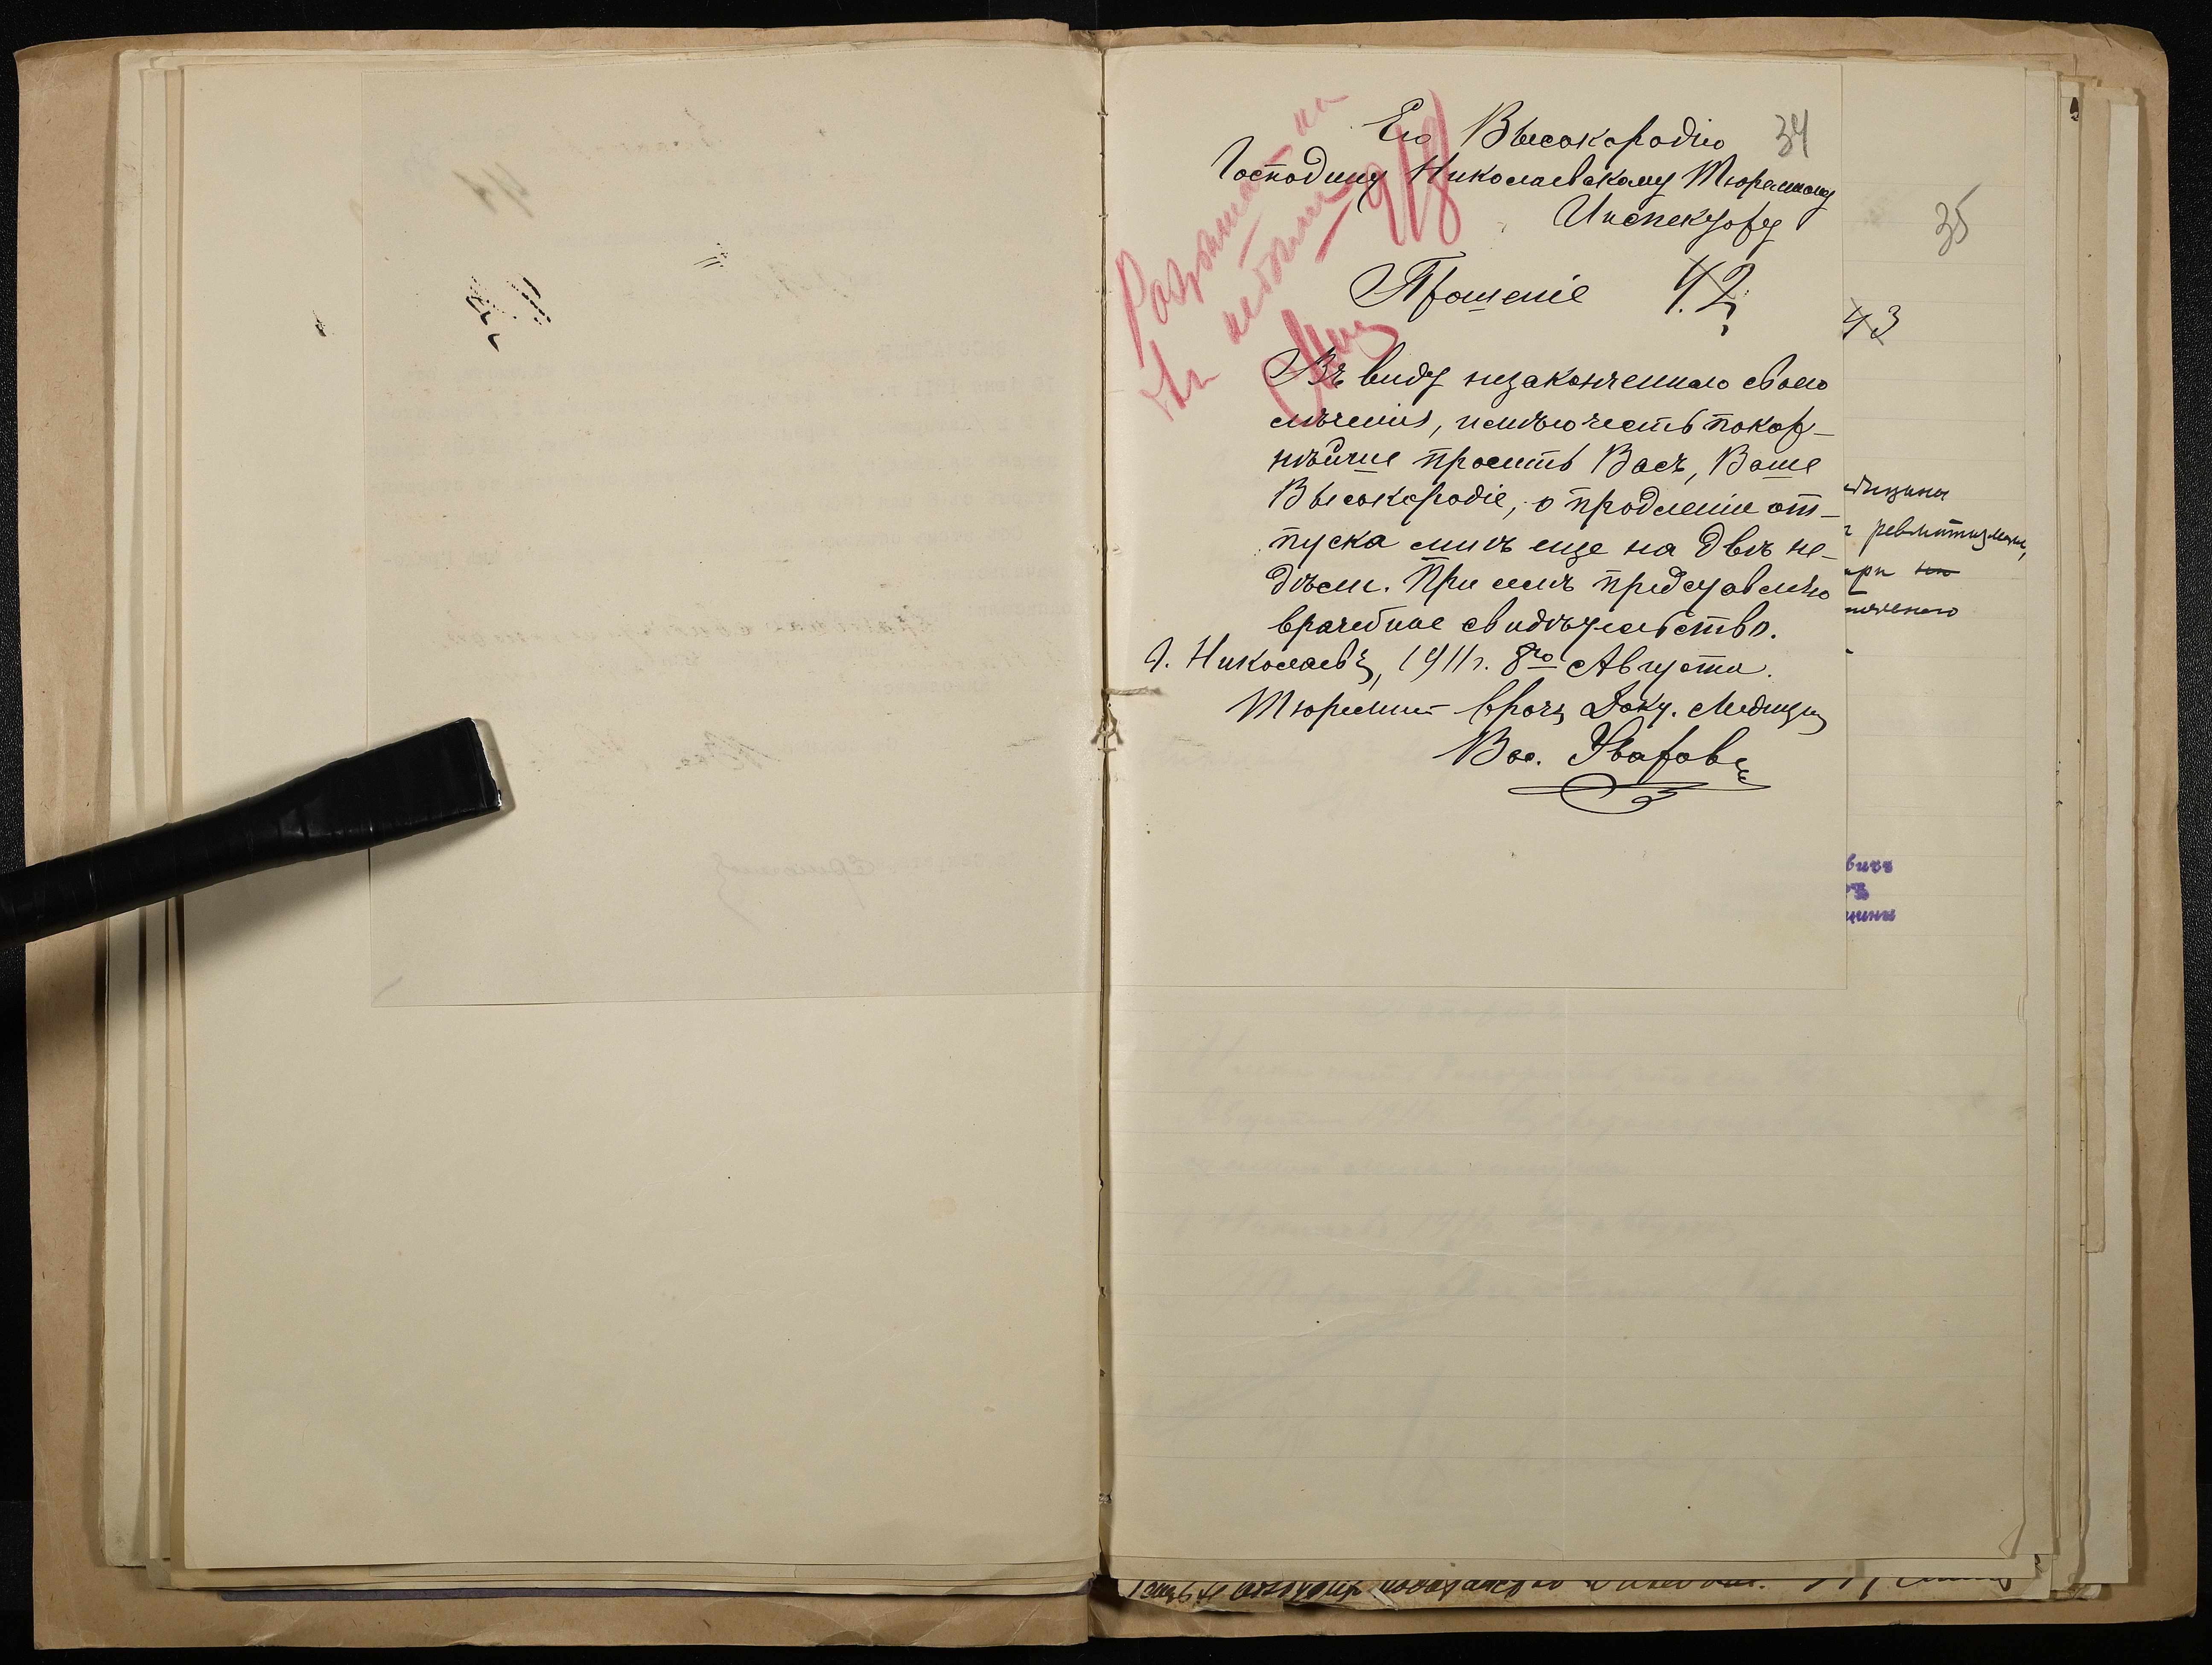 34
Его Высокородію
Господину Николаевскому Тюремному
Инспектору
35
Прошеніе 42
43
Разрѣшаю на
9/8
Въ виду незаконченнаго своего
лѣченія, имѣю честь покор-
нѣйше просить Васъ, Ваше
Высокородіе, о продленіи от-
пуска мнѣ еще на двѣ не-
дѣли. При семъ представлено
врачебное свидѣтельство.
Г. Николаевъ, 1911 г. 8го Августа.
Тюремный врачъ Докт. Медицины
Вас. Уваровъ
ревматизмомъ,